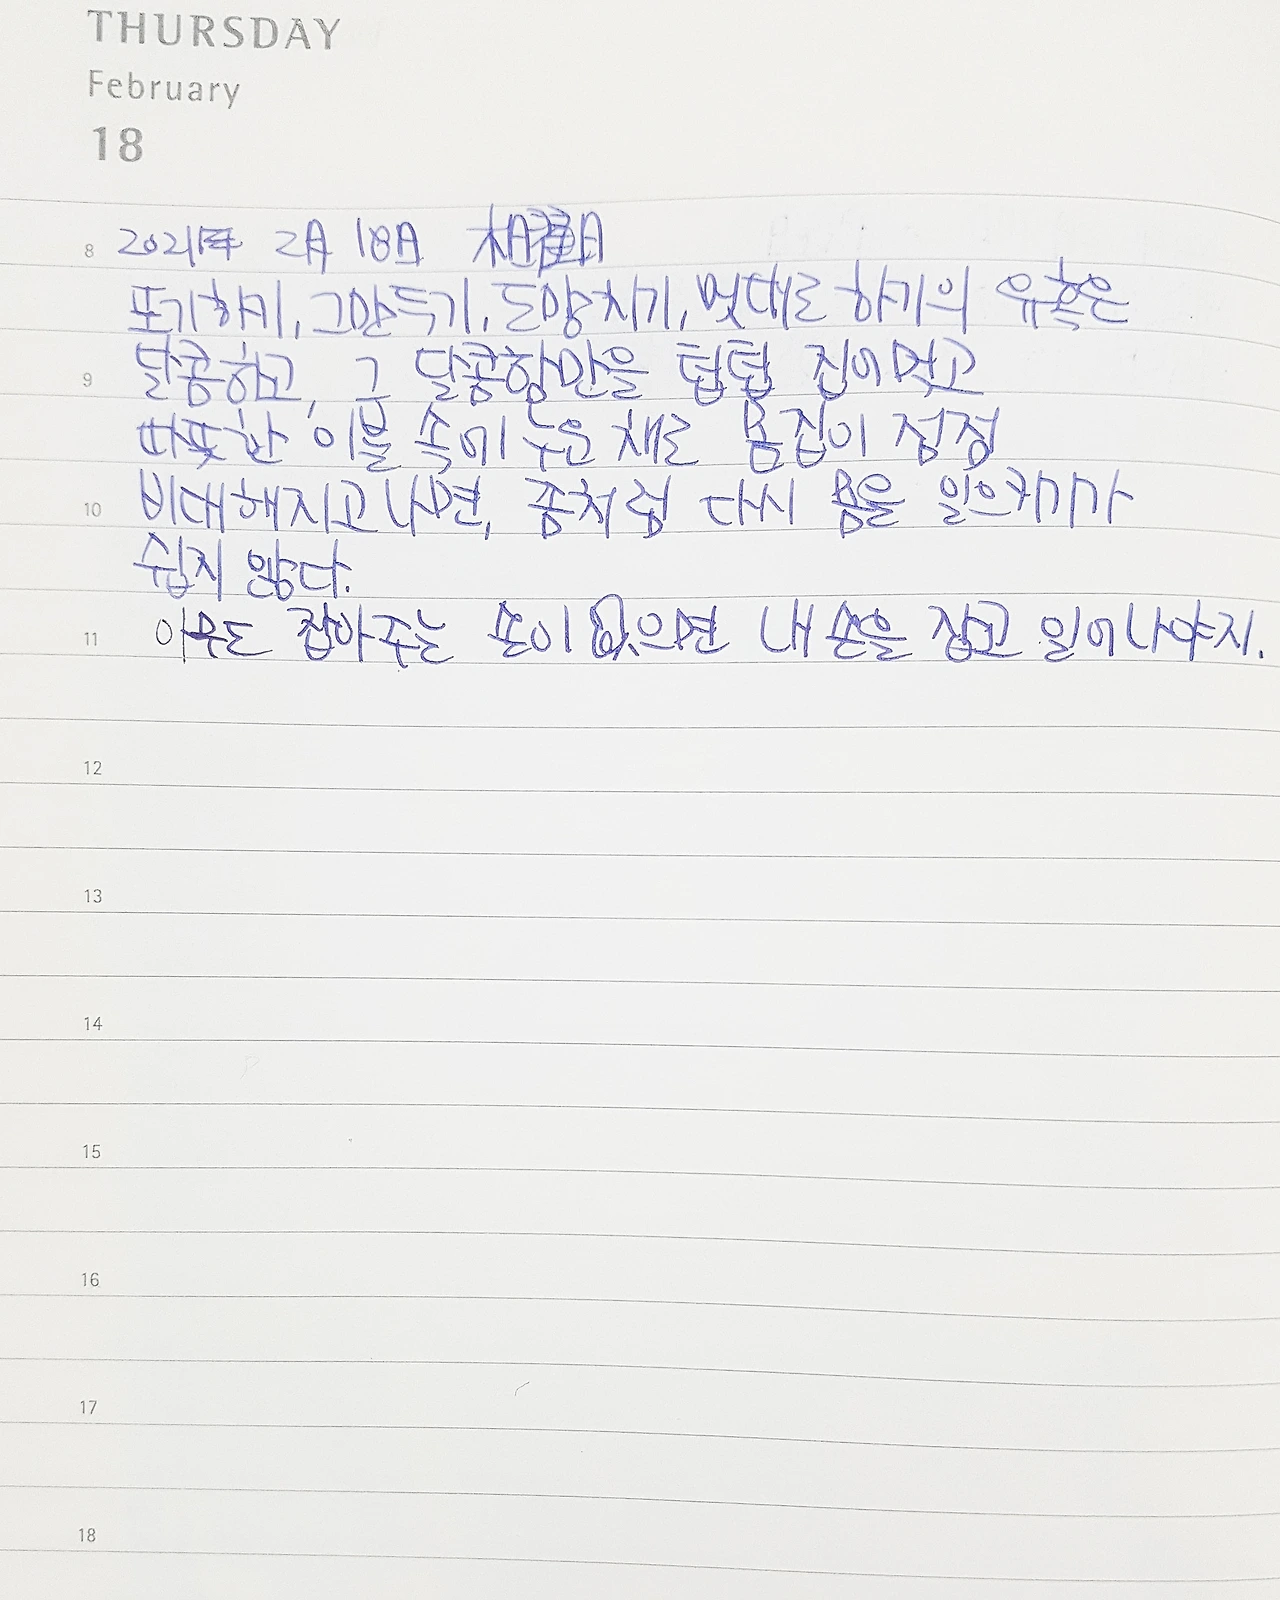 THURSDAY
February
18
8 2021年 2月 18日 木曜日
포기하기, 그만두기, 도망치기, 멋대로 하기의 유혹은
9 달콤하고, 그 달콤함만을 텁텁 집어먹고
따뜻한 이불 속에 누운 채로 몸집이 점점
10 비대해지고 나면, 좀처럼 다시 몸을 일으키기가
쉽지 않다.
11 아무도 잡아주는 손이 없으면 내 손을 잡고 일어나야지.
12
13
14
15
16
17
18